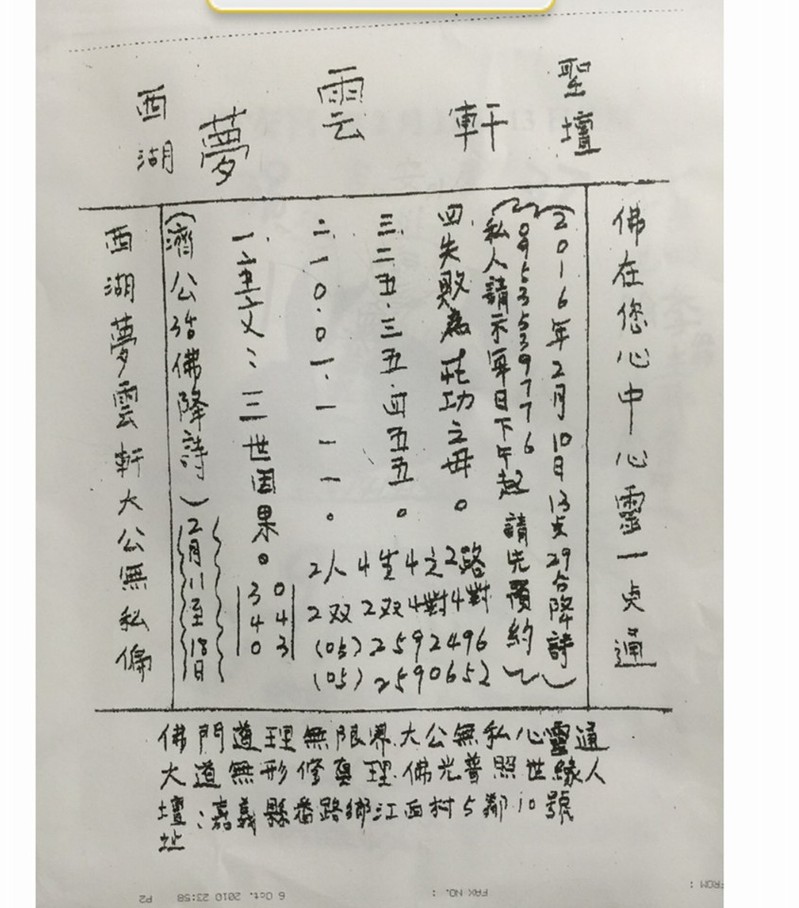 西湖夢雲軒聖壇
佛在您心中心靈一貞通
(2016年2月10日13点29分降詩)
(0953539776
私人請示每日下午起 請先預約)
四失敗為莊功之毋。
三.二五.三五.四五五。
二.一0.0一.一一一。
一.三世因果。
(濟公活佛降詩)
2月11至18日
2人4生4之2路
2双2双4對4對
(05)2592496
(05)2590652
340
043
西湖夢雲軒大公無私偏
佛門道理無限界.大公無私心靈通
大道無形修真理.佛光普照世緣人
壇址:嘉義縣番路鄉江西村5鄰10號
FROM :
FAX NO. :
6 Oct. 2010 23:58 P2